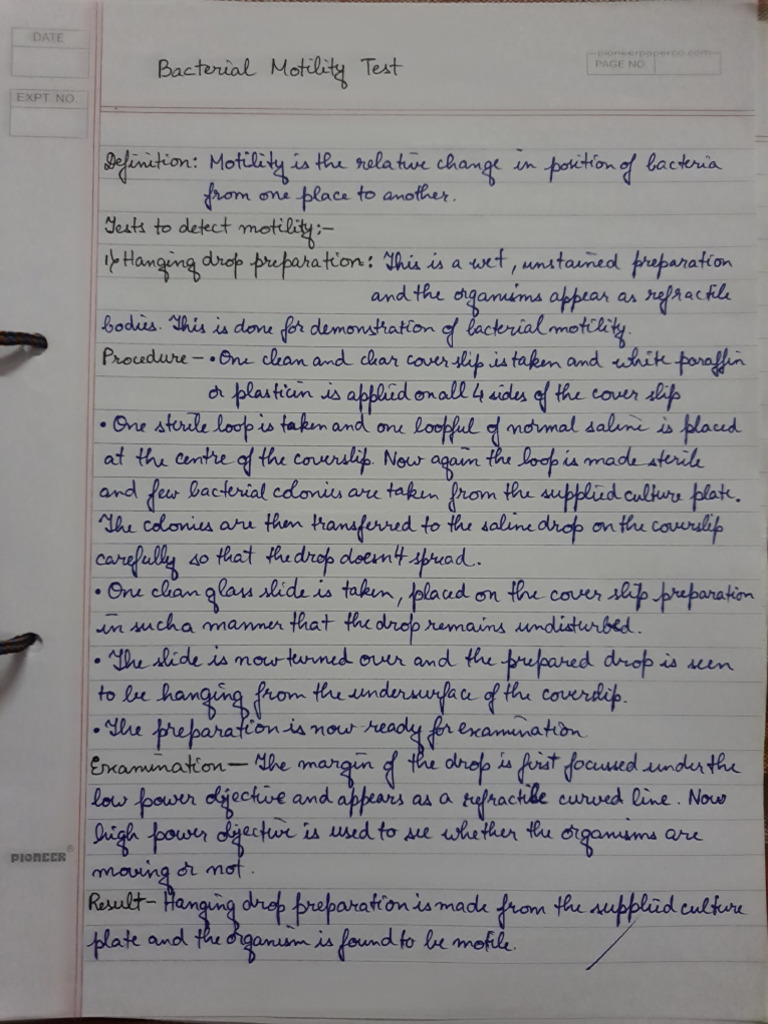 DATE
pioneerpaperco.com
PAGE NO.
EXPT. NO.
Bacterial Motility Test
Definition: Motility is the relative change in position of bacteria
from one place to another.
Tests to detect motility:-
1) Hanging drop preparation: This is a wet, unstained preparation
and the organisms appear as refractile
bodies. This is done for demonstration of bacterial motility.
Procedure - • One clean and clear cover slip is taken and white paraffin
or plasticin is applied on all 4 sides of the cover slip
• One sterile loop is taken and one loopful of normal saline is placed
at the centre of the coverslip. Now again the loop is made sterile
and few bacterial colonies are taken from the supplied culture plate.
The colonies are then transferred to the saline drop on the coverslip
carefully so that the drop doesn't spread.
• One clean glass slide is taken, placed on the cover slip preparation
in such a manner that the drop remains undisturbed.
• The slide is now turned over and the prepared drop is seen
to be hanging from the undersurface of the coverslip.
• The preparation is now ready for examination
Examination - The margin of the drop is first focussed under the
low power objective and appears as a refractile curved line. Now
high power objective is used to see whether the organisms are
moving or not.
PIONEER®
Result - Hanging drop preparation is made from the supplied culture
plate and the organism is found to be motile.